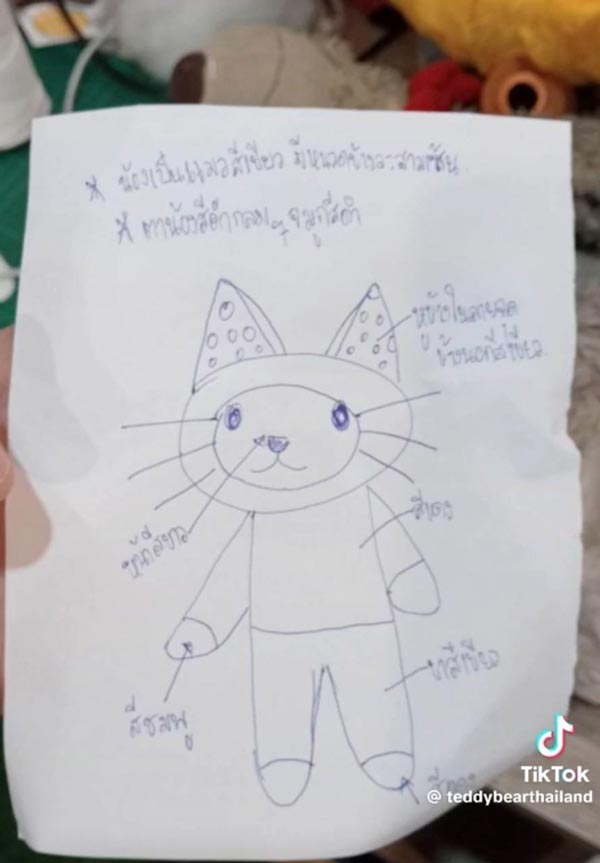 * น้องเป็นแมวสีเขียว มีหนวดข้างละสามเส้น
* ตาน้องสีดำกลมๆ จมูกสีดำ
หูข้างในลายจุด
ข้างนอกสีเขียว
สีแดง
หน้าสีขาว
ขาสีเขียว
สีชมพู
TikTok
@ teddybearthailand